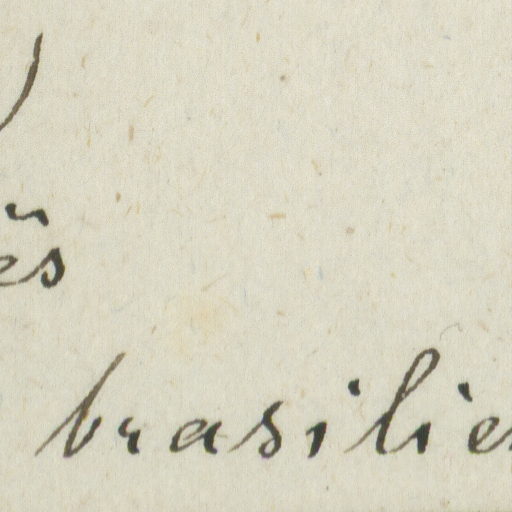 )
ẽs
brasilie